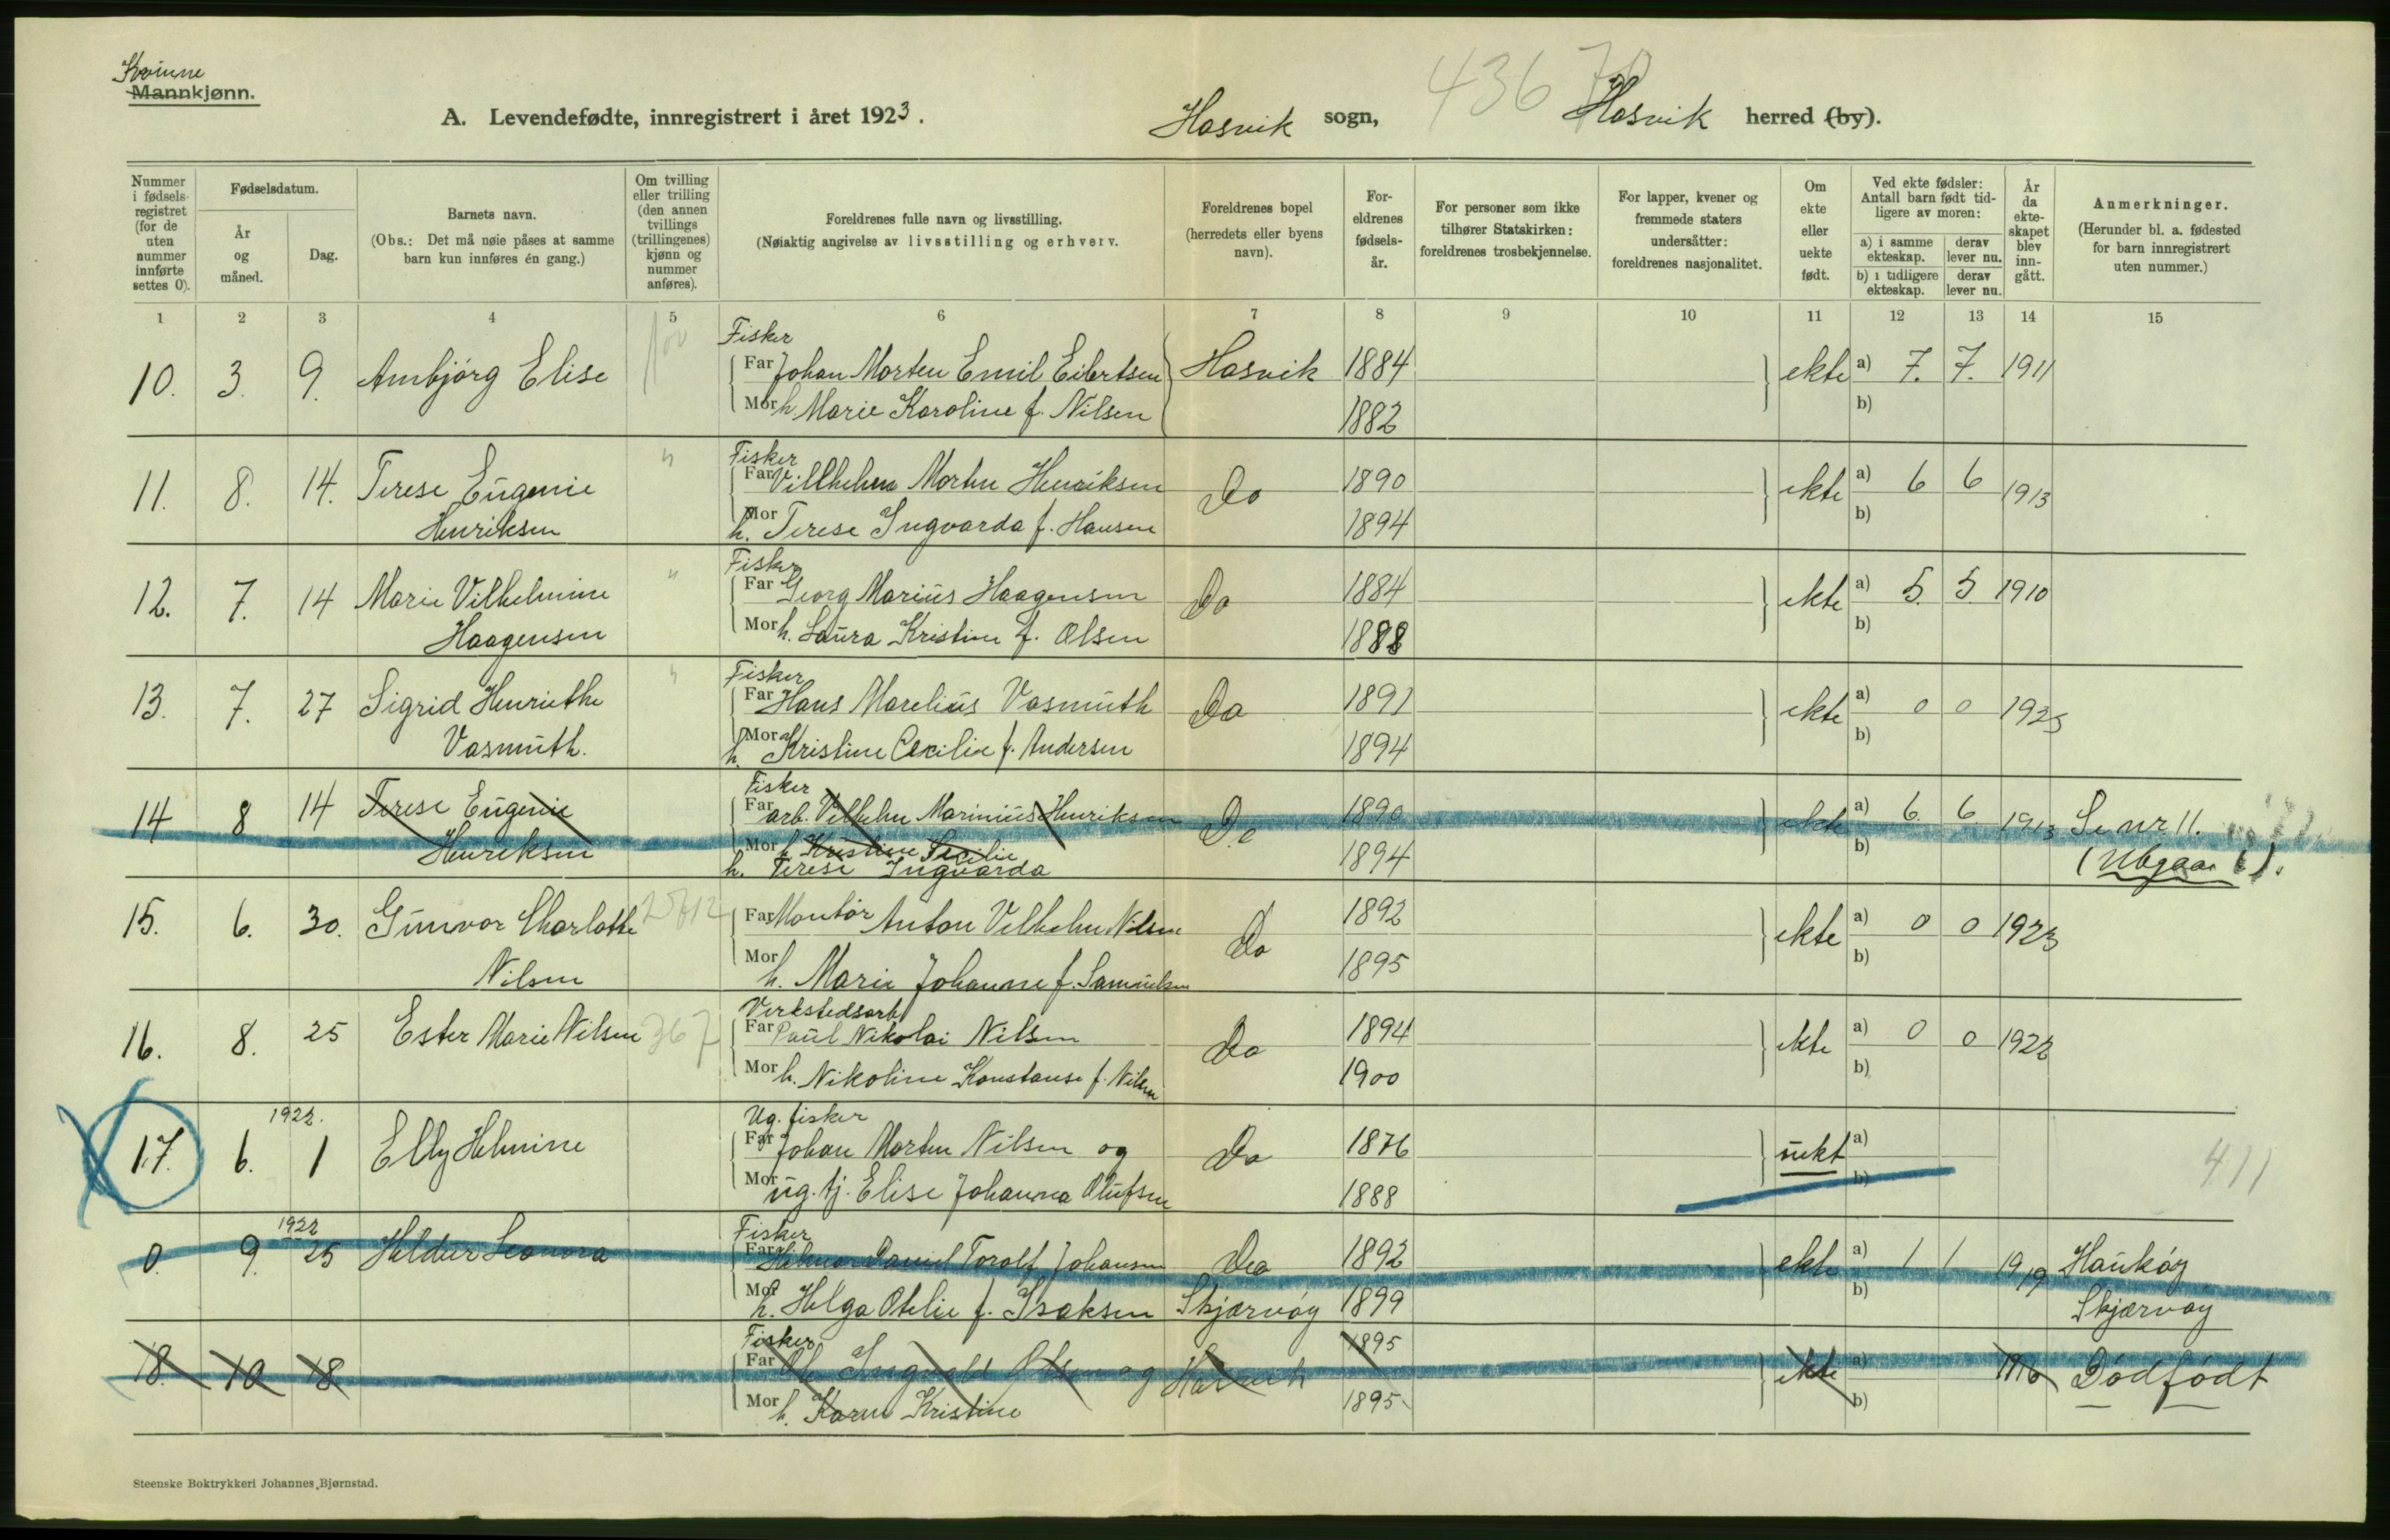 Kvinne
Mannkjønn.
A. Levendefødte, innregistrert i året 1923. Hasvik sogn, Hasvik herred (by).
436
Nummer i fødsels-registret (for de uten nummer innførte settes 0).
Fødselsdatum.
År og måned.
Dag.
Barnets navn.
(Obs.: Det må nøie påses at samme barn kun innføres én gang.)
Om tvilling eller trilling (den annen tvillings (trillingenes) kjønn og nummer anføres).
Foreldrenes fulle navn og livsstilling.
(Nøiaktig angivelse av livsstilling og erhverv.
Foreldrenes bopel (herredets eller byens navn).
For-eldrenes fødsels-år.
For personer som ikke tilhører Statskirken: foreldrenes trosbekjennelse.
For lapper, kvener og fremmede staters undersåtter: foreldrenes nasjonalitet.
Om ekte eller uekte født.
Ved ekte fødsler: Antall barn født tid-ligere av moren:
a) i samme ekteskap. derav lever nu.
b) i tidligere ekteskap. derav lever nu.
År da ekte-skapet blev inn-gått.
Anmerkninger.
(Herunder bl. a. fødested for barn innregistrert uten nummer.)
1 2 3 4 5 6 7 8 9 10 11 12 13 14 15
Fisker
10. 3. 9. Annbjörg Elise Far Johan Morten Emil Eilertsen Hasvik 1884 ekte a) 7. 7. 1911
Mor h. Marie Karoline f. Nilsen 1882 b)
Fisker
11. 8. 14. Terese Eugenie Far Villhelm Morten Henriksen Do 1890 ekte a) 6 6 1913
Henriksen Mor h. Terese Ingvarda f. Hansen 1894 b)
Fisker
12. 7. 14 Marie Vilhelmine Far Georg Marius Haagensen Do 1884 ekte a) 5. 5. 1910
Haagensen Mor h. Laura Kristine f. Olsen 1888 b)
Fisker
13. 7. 27 Sigrid Henriette Far Hans Marelius Vasmuth Do 1891 ekte a) 0 0 1923
Vasmuth. Mor h. Kristine Cecilie f. Andersen 1894 b)
Fisker
14 8 14 Terese Eugenie Far arb. Vilhelm Marinius Henriksen Do 1890 ekte a) 6. 6. 1913 Se nr 11.
Henriksen Mor h. Kristine Secilie 1894 b) (Utgaar!).
h. Terese Ingvarda
15. 6. 30. Gunvor Charlotte Far Montör Anton Vilhelm Nilsen Do 1892 ekte a) 0 0 1923
Nilsen Mor h. Marie Johanne f. Samuelsen 1895 b)
Verkstedsarb
16. 8. 25 Ester Marie Nilsen 367 Far Paul Nikolai Nilsen Do 1894 ekte a) 0 0 1922
Mor h. Nikoline Konstanse f. Nilsen 1900 b)
1922. Ug. fisker
17. 6. 1 Elly Helmine Far Johan Morten Nilsen og Do 1876 uekt a) 411
Mor ug. tj. Elise Johanna Olufsen 1888 b)
1922 Fisker
0. 9. 25 Heldur Leonora Far Hilmar Daniel Toralf Johansen Do 1892 ekte a) 1 1 1919 Hauköy
Mor h. Helga Otelie f. Isaksen Skjærvöy 1899 b) Skjærvöy
Fisker 1895
18. 10 18 Far Ole Ingvald Olsen og Hasvik ekte a) 1916 Dödfödt
Mor h. Karen Kristine 1895 b)
Steenske Boktrykkeri Johannes Bjørnstad.